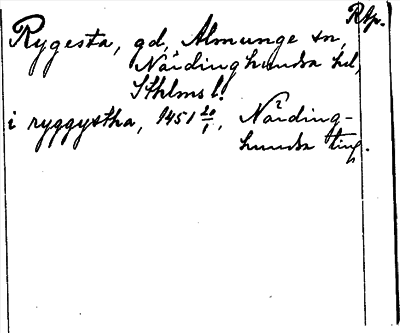 Rtp.
Rygesta, gd, Almunge sn,
Närdinghundra hd,
Sthlms l.
i ryggystha, 1451 20/1, Närding-
hundra ting.